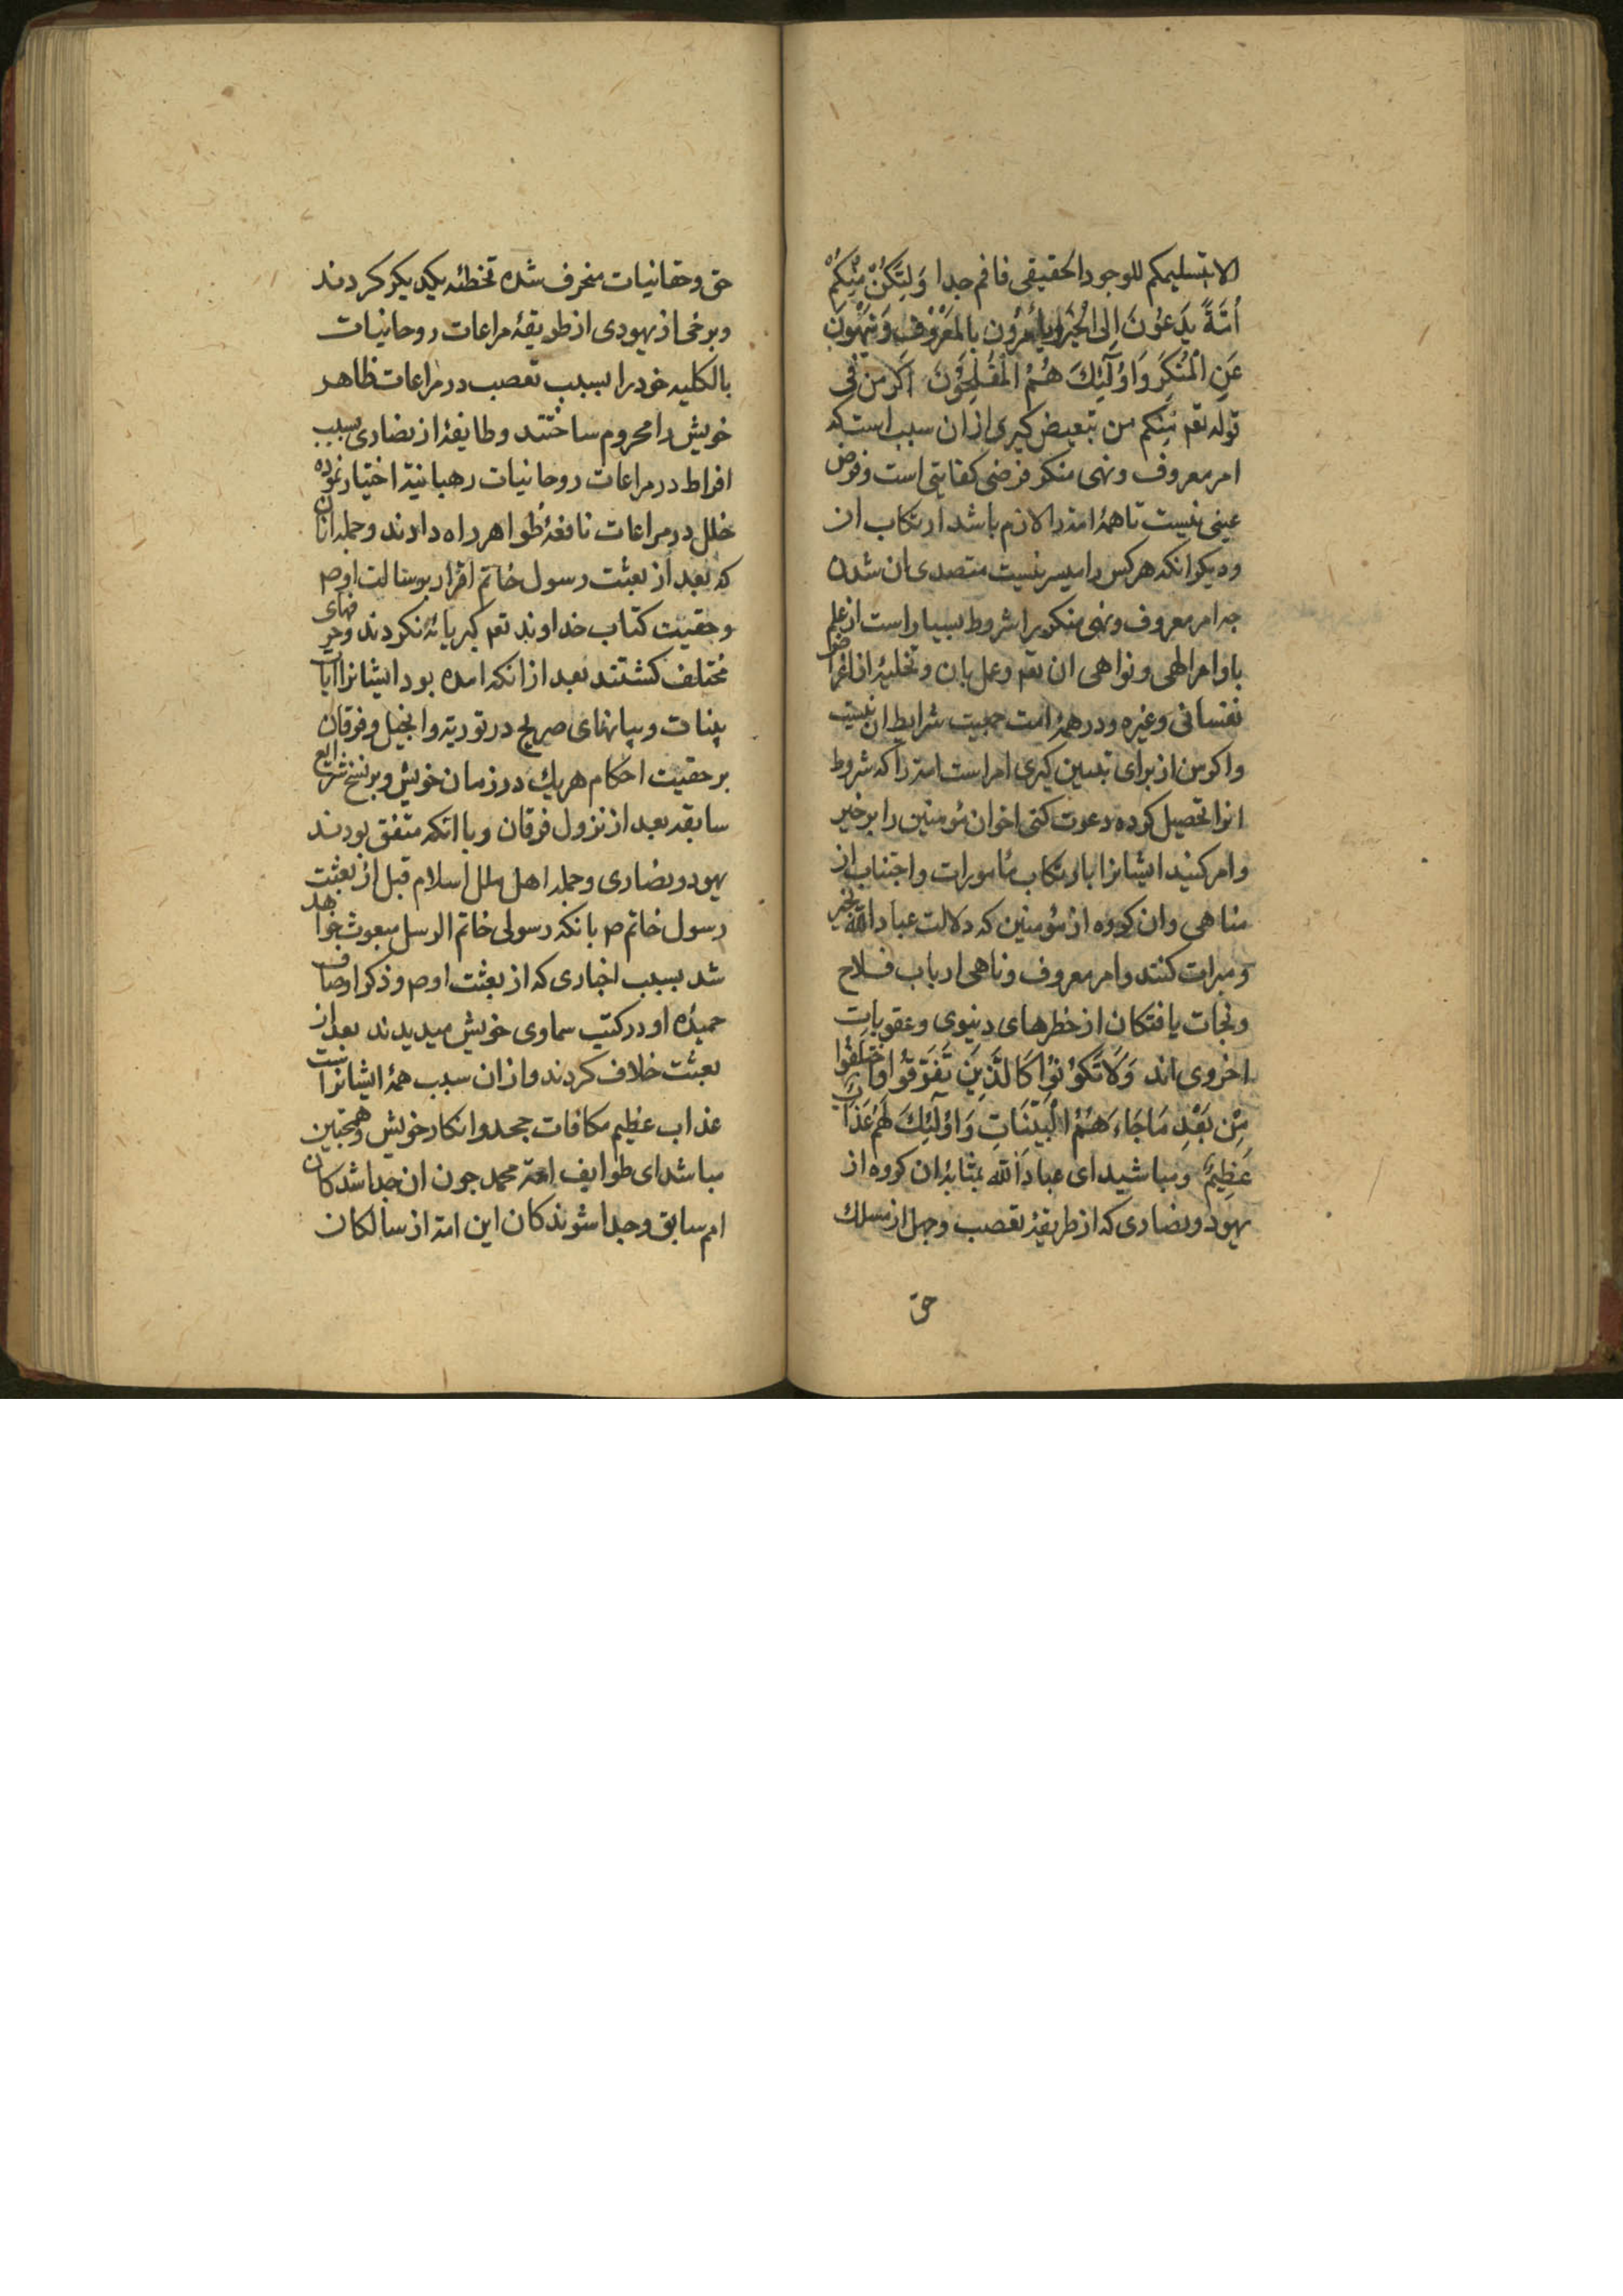 الا بتسلیمکم للوجود الحقیقی فافهم جدا وَلْتَكُنْ مِنْكُمْ
اُمَّةٌ يَدْعُونَ اِلَى الْخَيْرِ وَيَأْمُرُونَ بِالْمَعْرُوفِ وَيَنْهَوْنَ
عَنِ الْمُنْكَرِ وَاُولٰٓئِكَ هُمُ الْمُفْلِحُونَ اکر من فی
قوله تعم منکم من تبعیض کیری از ان سبب است که
امر معروف و نهی منکر فرضی کفایتی است و فرض
عینی نیست تا همهٔ امة را لازم باشد ارتکاب ان
و دیکر انکه هر کس را میسر نیست متصدی ان شدن
جه امر معروف و نهی منکر را شروط بسیار است از علم
باوامر الهی و نواهی ان تعم و عمل بان و تخلیهٔ از اغراض
نفسانی و غیره و در همهٔ امت جمعیت شرایط ان نیست
و اکر من از برای تبیین کیری امر است امة را که شروط
انرا تحصیل کرده دعوت کنی اخوان مؤمنین را بر خیر
و امر کنید ایشانرا بارتکاب مأمورات و اجتناب از
مناهی و ان کروه از مؤمنین که دلالت عباد الله بخیر
و مبرات کنند و امر معروف و ناهی ارباب فلاح
و نجات یافتکان از خطرهای دینوی و عقوبات
اخروی اند وَلَا تَكُونُوا كَالَّذِينَ تَفَرَّقُوا وَاخْتَلَفُوا
مِنْ بَعْدِ مَا جَاءَهُمُ الْبَيِّنَاتِ وَاُولٰٓئِكَ لَهُمْ عَذَابٌ
عَظِيمٌ و مباشید ای عباد الله بمثابهٔ ان کروه از
یهود و نصاری که از طریقهٔ تعصب و جهل از مسلک
حق
حق و حقانیات منحرف شده تخطئه یکدیکر کردند
و برخی از یهودی از طریقهٔ مراعات روحانیات
بالکلیه خود را بسبب تعصب در مراعات ظاهر
خویش را محروم ساختند و طایفهٔ از نصاری بسبب
افراط در مراعات روحانیات رهبانیة اختیار نموده
خلل در مراعات نافعهٔ ظواهر راه دادند و جمله انان
که بعد از بعثت رسول خاتم اقرار برسالت او ص
و حقیت کتاب خداوند تعم کبریائه نکردند و حرفهای
مختلف کشتند بعد از انکه امده بود ایشانرا ایات
بینات و بیانهای صریح در توریة و انجیل و فرقان
بر حقیت احکام هر یک در زمان خویش و بر نسخ شرایع
سابقه بعد از نزول فرقان و با انکه متفق بودند
یهود و نصاری و جمله اهل ملل اسلام قبل از بعثت
رسول خاتم ص بانکه رسولی خاتم الرسل مبعوث خواهد
شد بسبب اخباری که از بعثت او ص و ذکر اوصاف
حمیدهٔ او در کتب سماوی خویش میدیدند بعد از
بعثت خلاف کردند و ازان سبب همهٔ ایشانراست
عذاب عظیم مکافات جحد و انکار خویش و همچنین
مباشد ای طوایف امة محمد جون ان جدا شدکان
امم سابق و جدا شوندکان این امة از سالکان